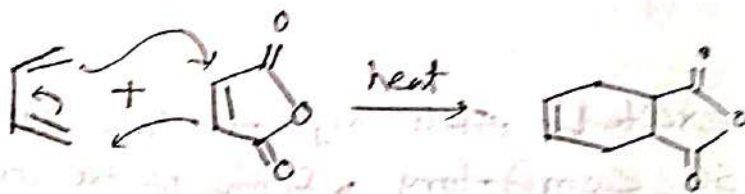 O
+ O heat O
O
O
O